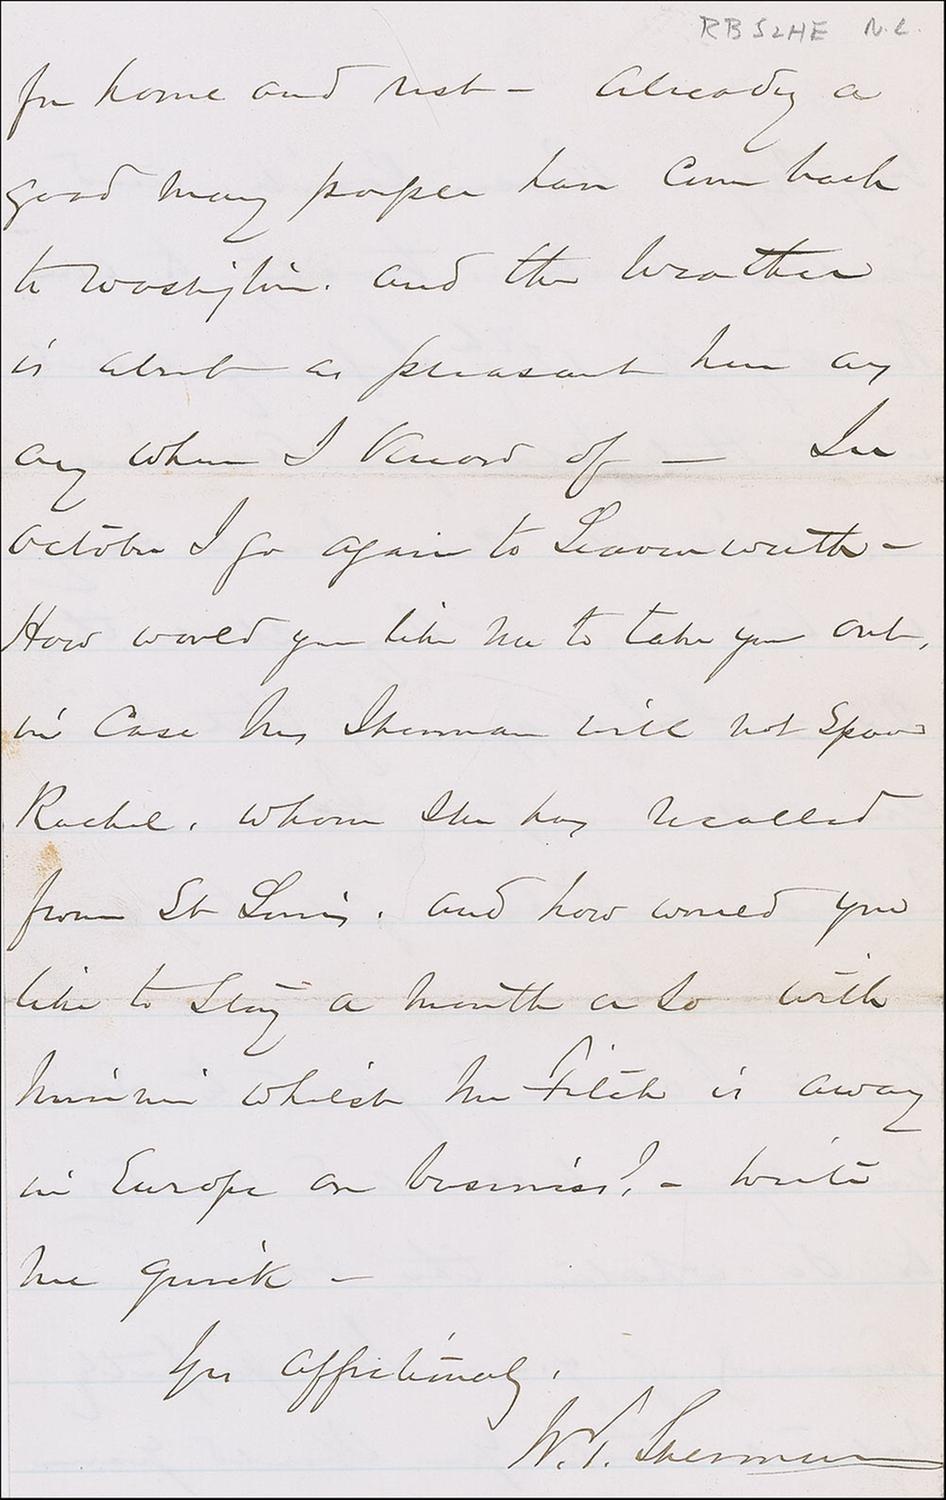 RBSLHE N.C.
for home and rest – Already a
good many people have come back
to Washington. and the weather
is about as pleasant here as
any where I know of – In
October I go again to Leavenworth –
How would you like me to take you out,
in Case Mrs Sherman will not Spare
Rachel, whom She has recalled
from St Louis. and how would you
like to Stay a month or So with
Minnie whilst Mr Fitch is away
in Europe on business?. – Write
me quick –
Yrs affectionately,
W. T. Sherman